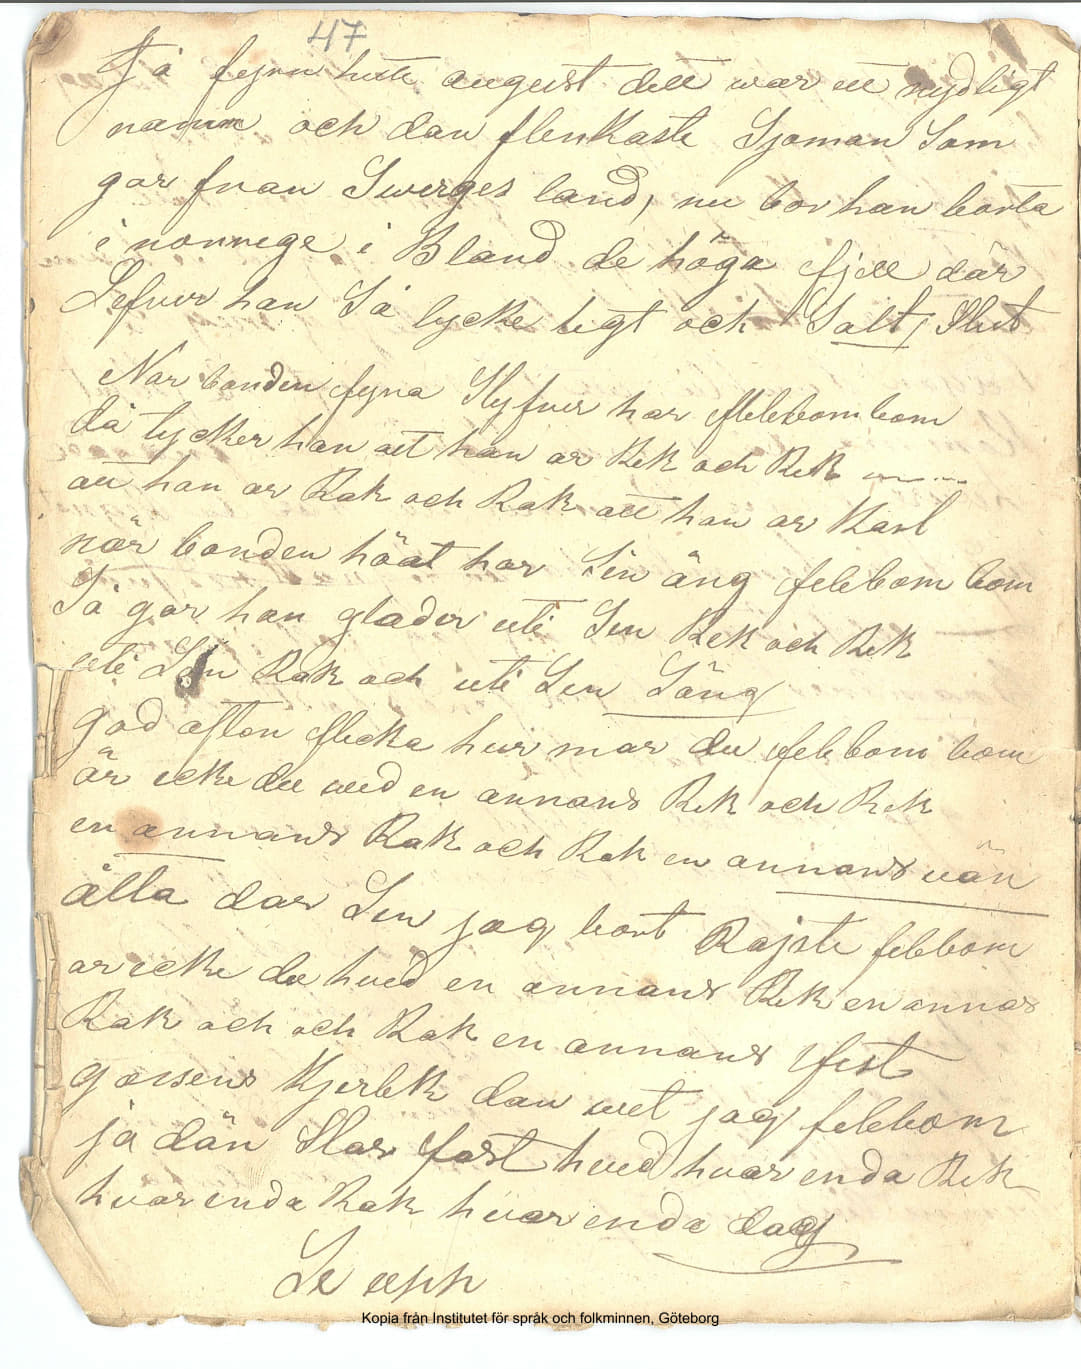 47
Så fejnn hette august dett war ett nydligt
namn och dan flenkaste Sjoman Som
gar fran Swerges land, nu bor han borta
i norrege i Bland de höga fjell där
Lefver han Så lycke ligt och Salt, Slut
Nar bonden fejna Slyfver har flebbombom
då tycker han att han ar Rek och Rek
att han ar Rak och Rak att han ar Karl
när bonden höat har Sin äng felebom bom
Så gar han glader uti Sin Rek och Rek
uti Sin Rak och uti Sin Säng
god afton flicka hur mar du felebom bom
är icke du wed en annans Rek och Rek
en annans Rak och Rak en annans vän
åtta dar Sen jag bort Rajste febbom
ar icke du hved en annans Rek en annas
Rak och och Rak en annans fest
gossens Kjerlek dan wet jag febbom
ja dän Slar fast hved hvar enda Rek
hvar enda Rak hvar enda dag
Se upp
Kopia från Institutet för språk och folkminnen, Göteborg